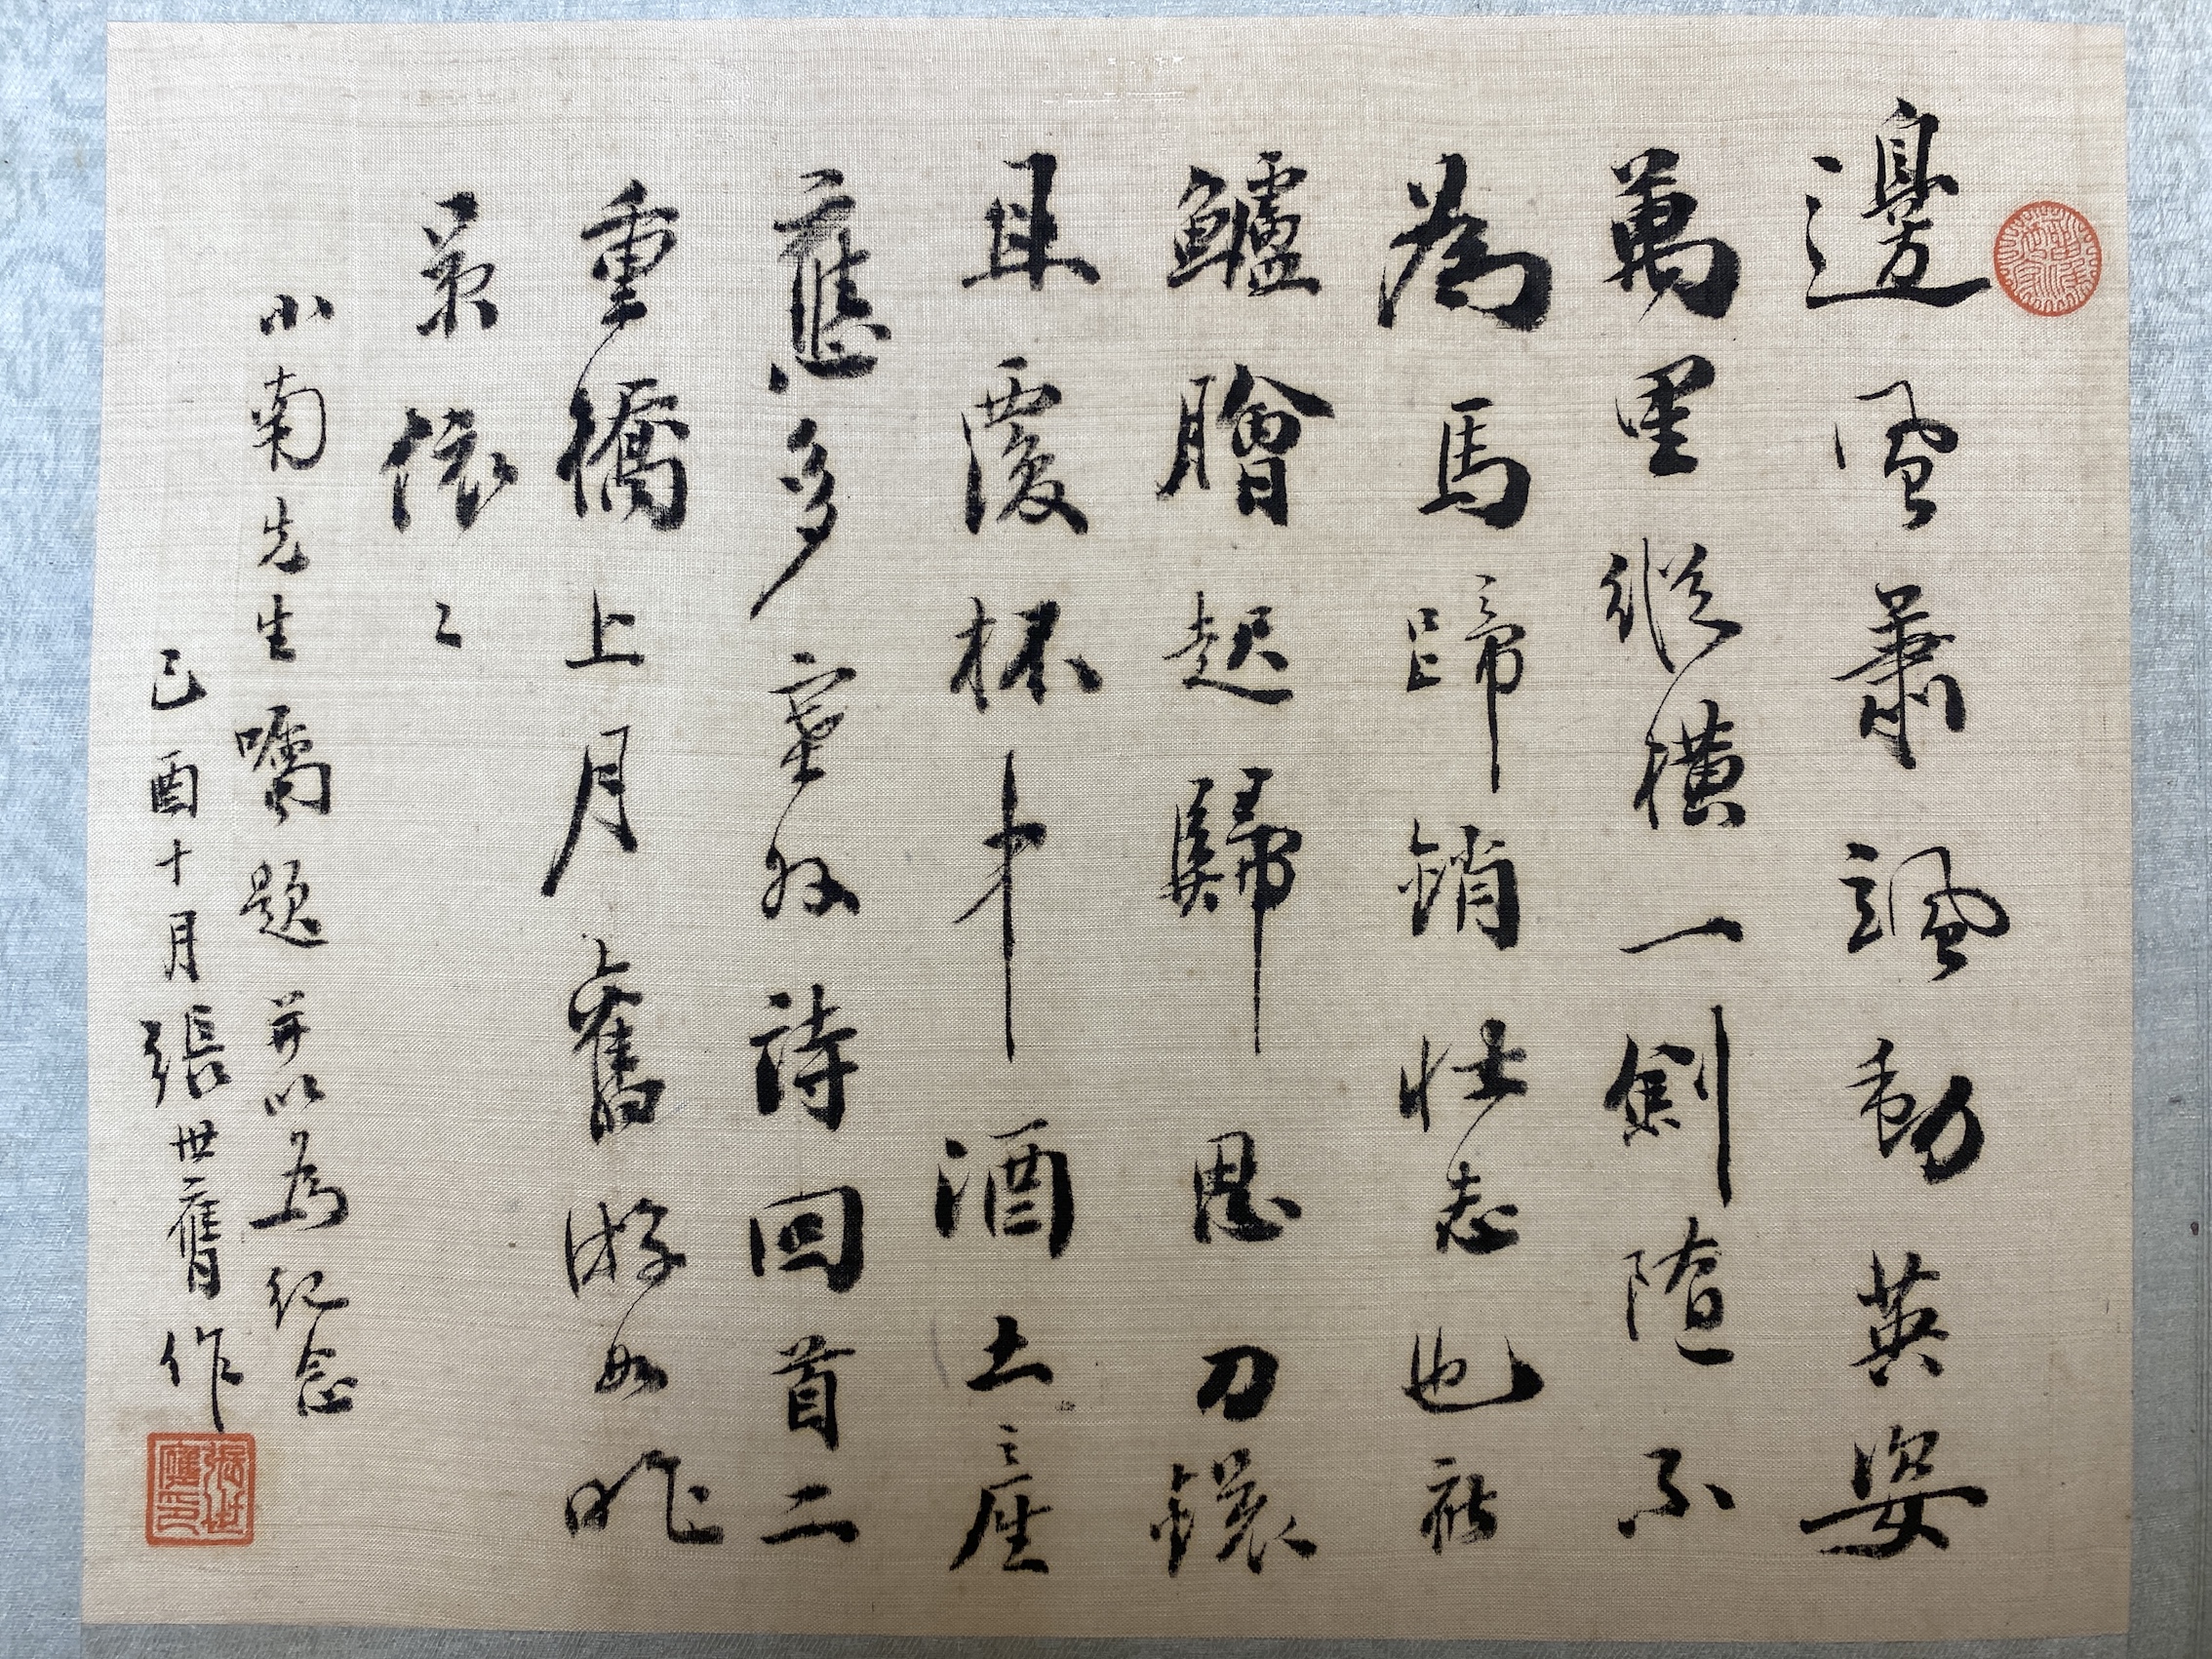 邊風蕭颯動英姿
萬里縱橫一劍隨不
為馬蹄銷壯志也
鱸膾起歸思刀鐶
且覆杯中酒土座
應多塞外詩回首二
重橋上月舊游如昨
景依〻
小南先生囑題并以為紀念
己酉十月張世膺作
張世膺印